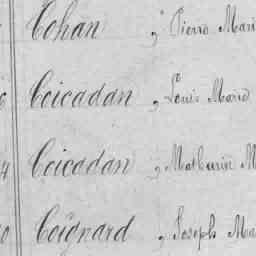 Cohan " Pierre Mari
Coicadan " Louis Marie
Coicadan " Mathurin M
Coignard " Joseph Ma